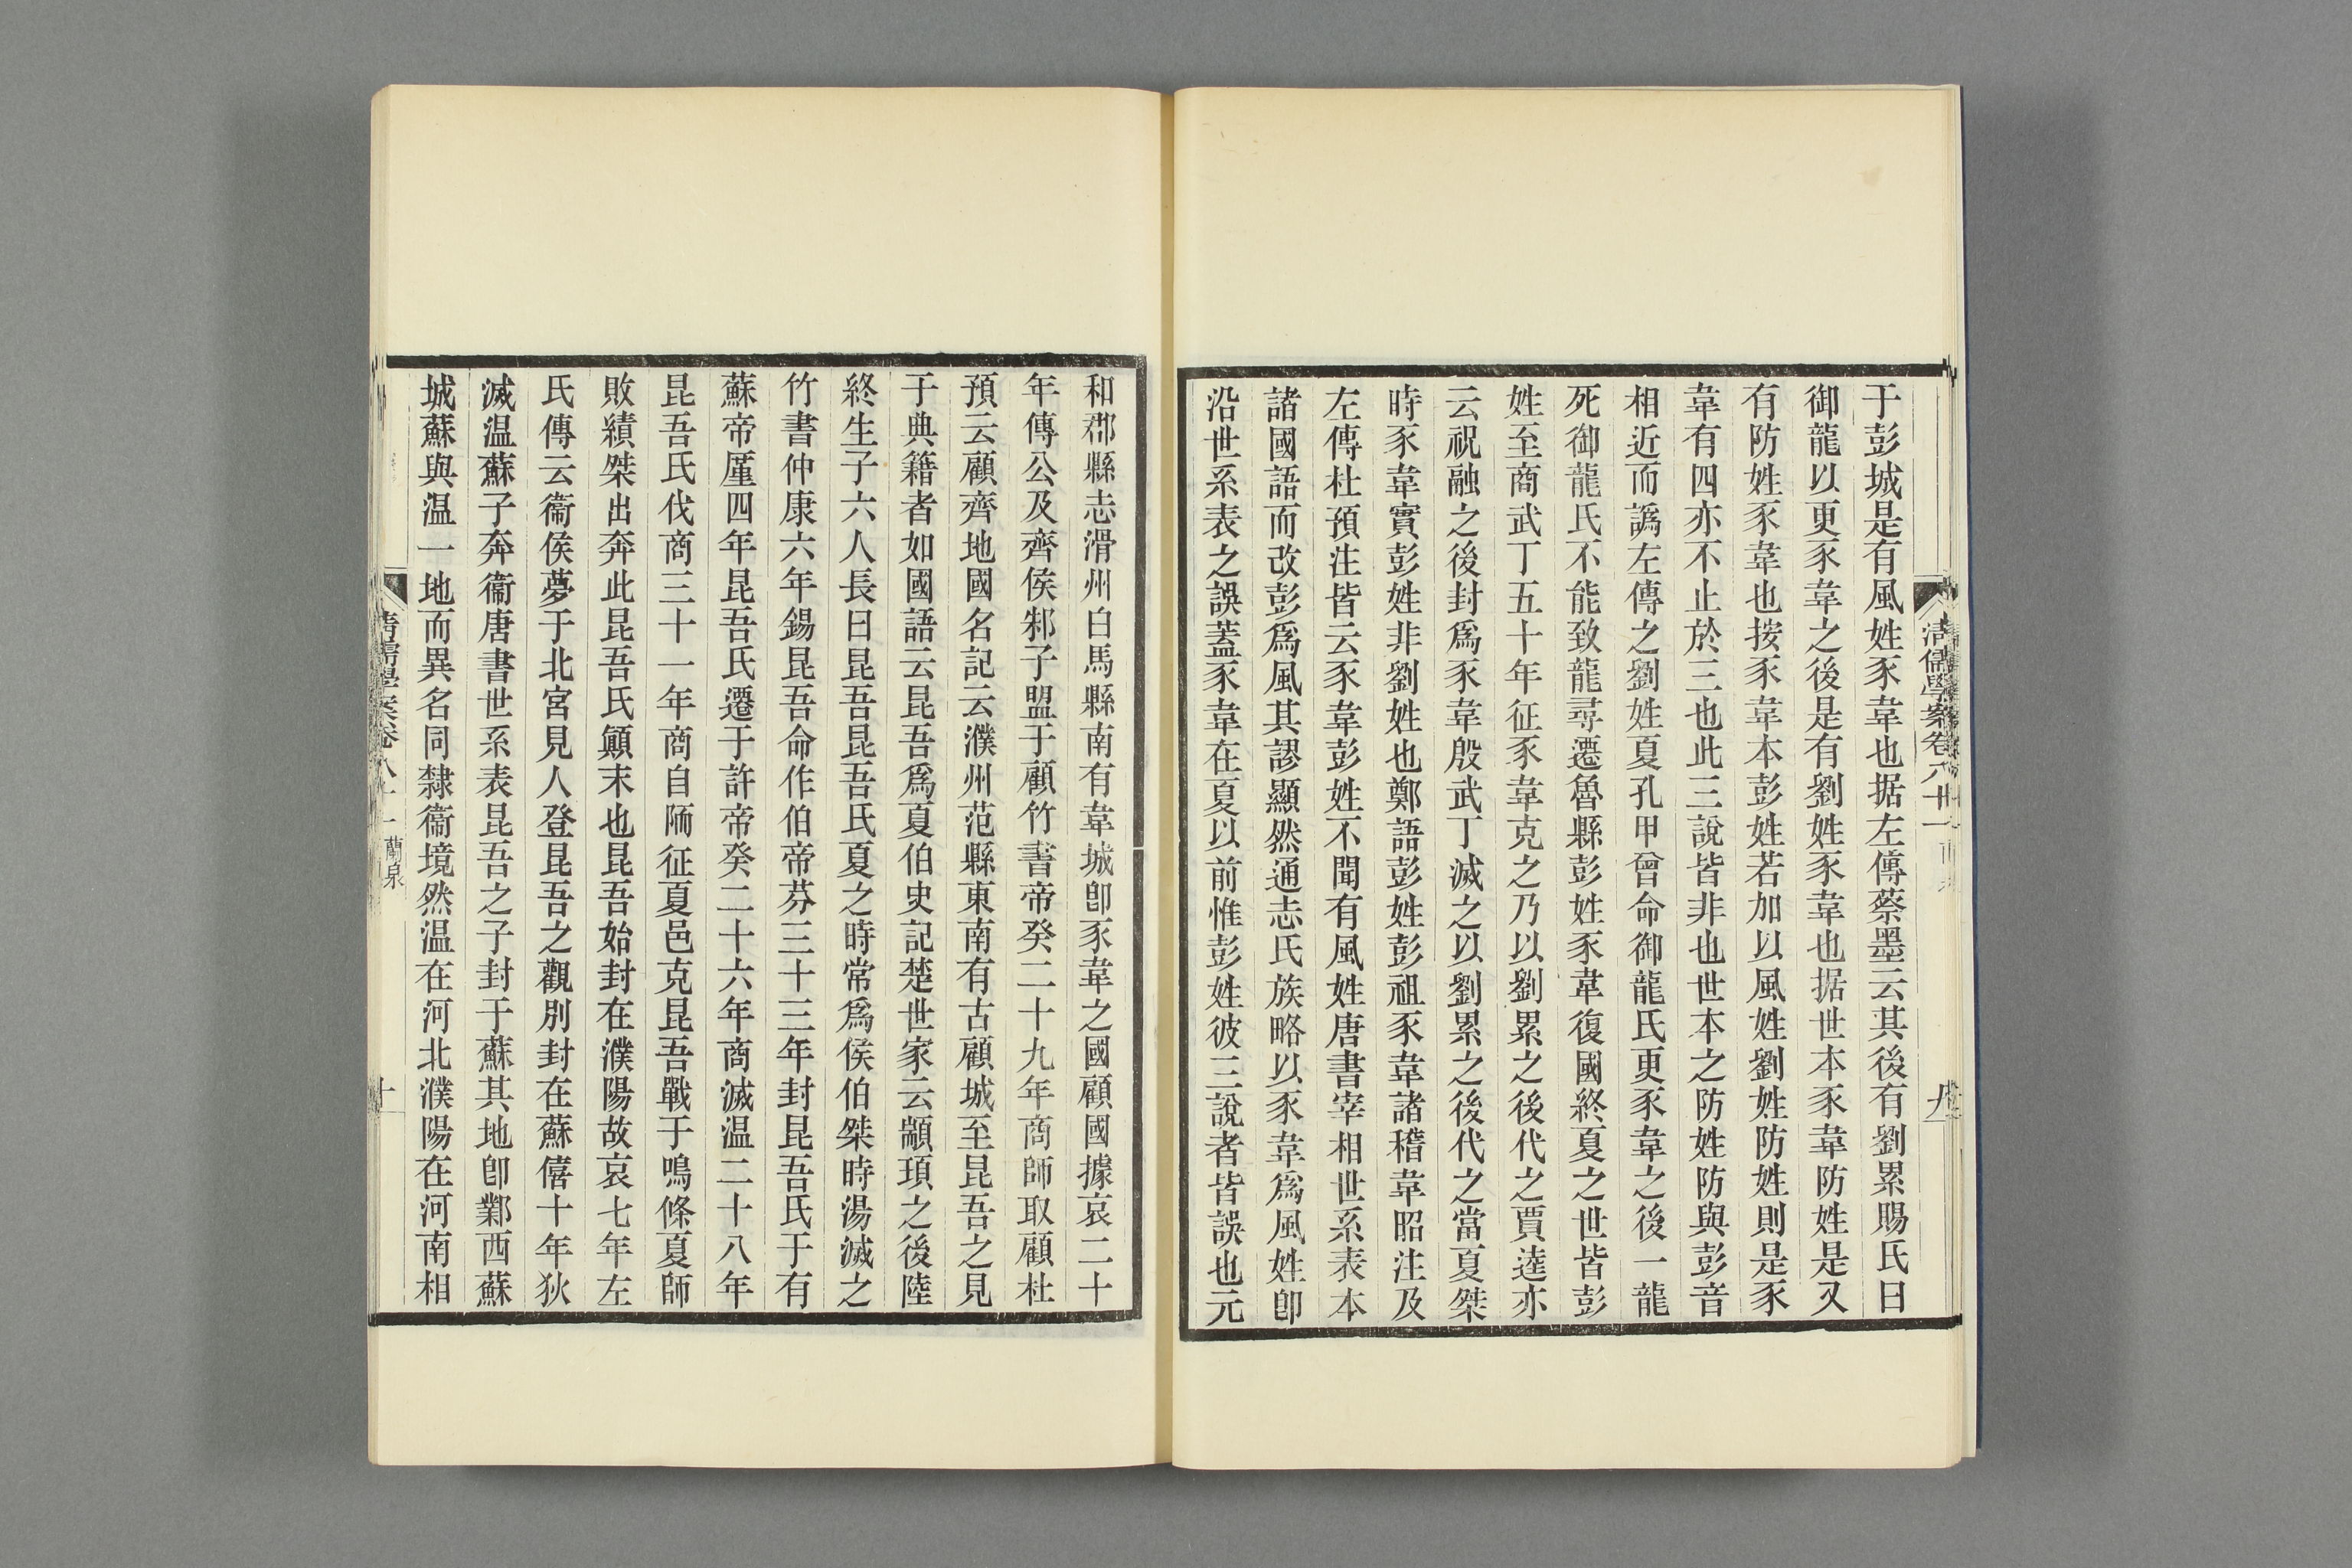 于彭城是有風姓豕韋也据左傳蔡墨云其後有劉累賜氏曰
御龍以更豕韋之後是有劉姓豕韋也据世本豕韋防姓是又
有防姓豕韋也按豕韋本彭姓若加以風姓劉姓防姓則是豕
韋有四亦不止於三也此三說皆非也世本之防姓防與彭音
相近而譌左傳之劉姓夏孔甲曾命御龍氏更豕韋之後一龍
死御龍氏不能致龍尋遷魯縣彭姓豕韋復國終夏之世皆彭
姓至商武丁五十年征豕韋克之乃以劉累之後代之賈逵亦
云祝融之後封爲豕韋殷武丁滅之以劉累之後代之當夏桀
時豕韋實彭姓非劉姓也鄭語彭姓彭祖豕韋諸稽韋昭注及
左傳杜預注皆云豕韋彭姓不聞有風姓唐書宰相世系表本
諸國語而改彭爲風其謬顯然通志氏族略以豕韋爲風姓卽
沿世系表之誤蓋豕韋在夏以前惟彭姓彼三說者皆誤也元
清儒學案卷八十一
九
和郡縣志滑州白馬縣南有韋城卽豕韋之國顧國據哀二十
年傳公及齊侯邾子盟于顧竹書帝癸二十九年商師取顧杜
預云顧齊地國名記云濮州范縣東南有古顧城至昆吾之見
于典籍者如國語云昆吾爲夏伯史記楚世家云顓頊之後陸
終生子六人長曰昆吾昆吾氏夏之時常爲侯伯桀時湯滅之
竹書仲康六年錫昆吾命作伯帝芬三十三年封昆吾氏于有
蘇帝厪四年昆吾氏遷于許帝癸二十六年商滅温二十八年
昆吾氏伐商三十一年商自陑征夏邑克昆吾戰于鳴條夏師
敗績桀出奔此昆吾氏顚末也昆吾始封在濮陽故哀七年左
氏傳云衞侯夢于北宮見人登昆吾之觀別封在蘇僖十年狄
滅温蘇子奔衞唐書世系表昆吾之子封于蘇其地卽鄴西蘇
城蘇與温一地而異名同隸衞境然温在河北濮陽在河南相
清儒學案卷八十一 蘭泉
十